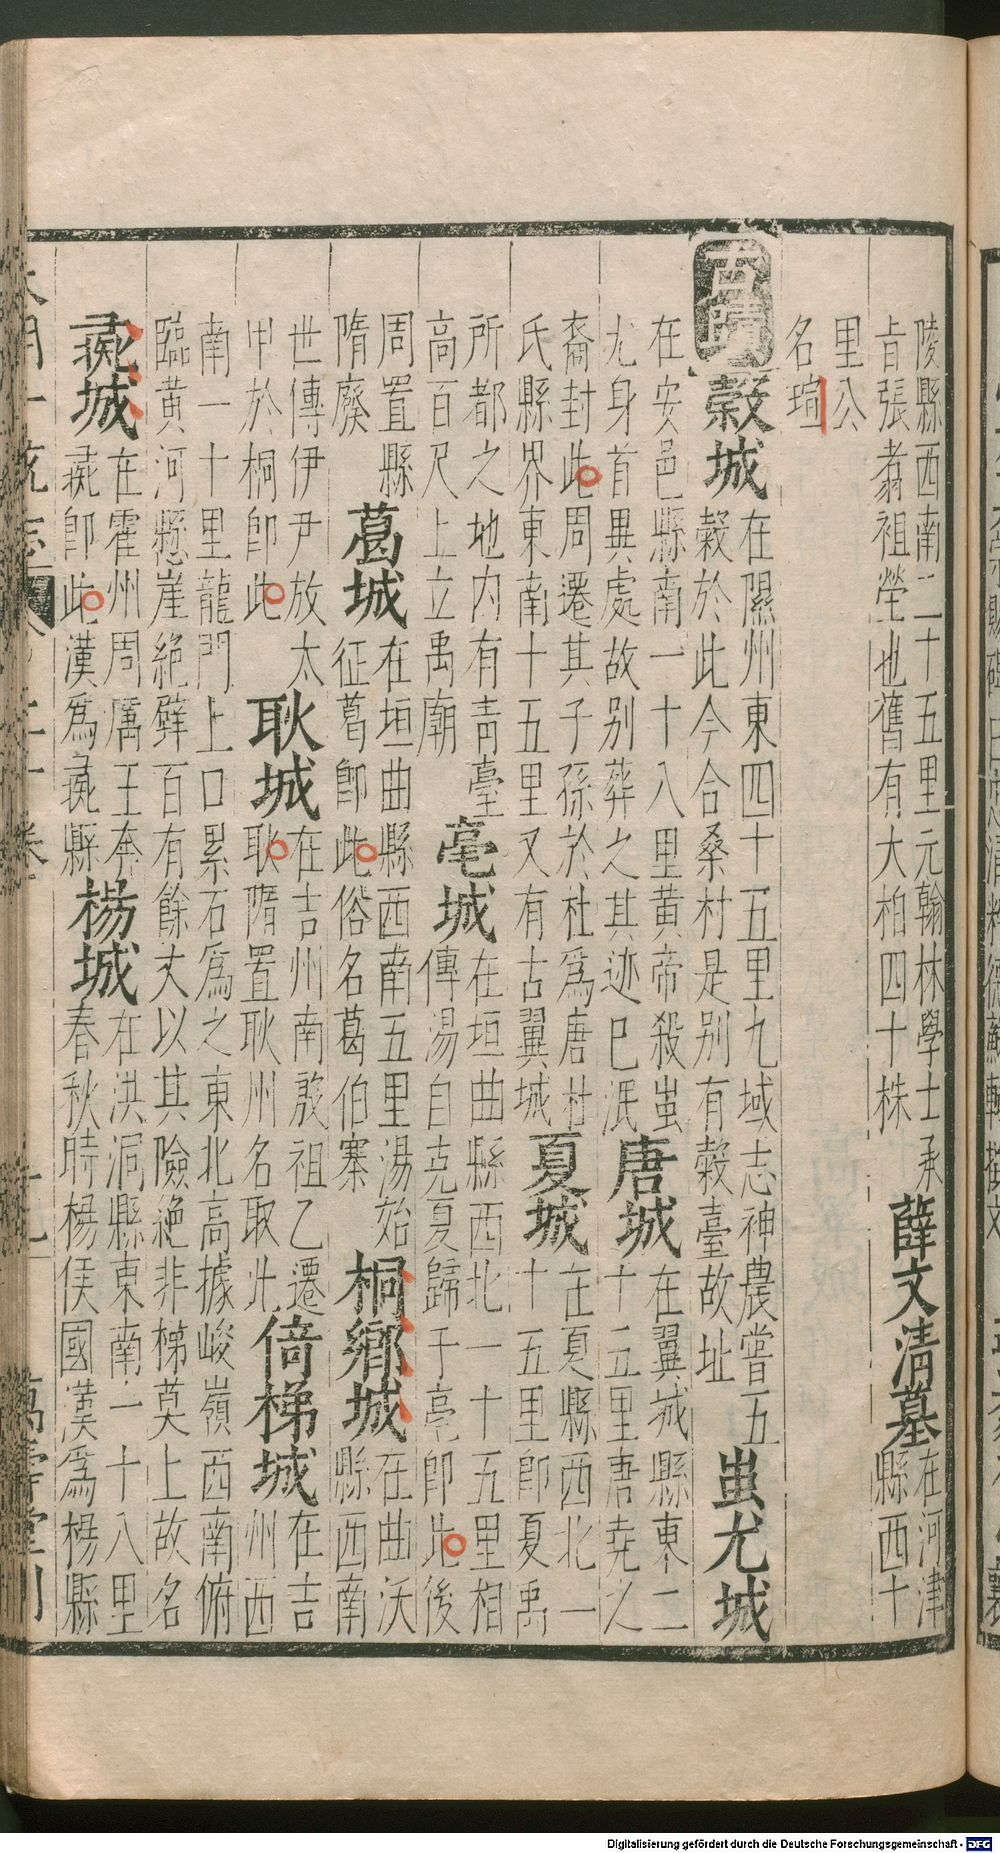 陵縣西南二十五里元翰林學士承
旨張翥祖塋也舊有大柏四十株
薛文清墓
在河津
縣西十
里公
名瑄
古蹟
穀城
在隰州東四十五里九域志神農嘗五
穀於此今合桑村是别有穀臺故址
蚩尤城
在安邑縣南一十八里黃帝殺蚩
尤身首異處故别葬之其迹已泯
唐城
在翼城縣東二
十五里唐堯之
裔封此周遷其子孫於杜爲唐杜
氏縣界東南十五里又有古翼城
夏城
在夏縣西北一
十五里即夏禹
所都之地内有青臺
高百尺上立禹廟
亳城
在垣曲縣西北一十五里相
傳湯自克夏歸于亳即此後
周置縣
隋廢
葛城
在垣曲縣西南五里湯始
征葛即此俗名葛伯寨
桐鄉城
在曲沃
縣西南
世傳伊尹放太
甲於桐即此
耿城
在吉州南殷祖乙遷
耿隋置耿州名取此
倚梯城
在吉
州西
南一十里龍門上口累石爲之東北高據峻嶺西南俯
臨黃河懸崖絶壁百有餘丈以其險絶非梯莫上故名
彘城
在霍州周厲王奔
彘即此漢爲彘縣
楊城
在洪洞縣東南一十八里
春秋時楊侯國漢爲楊縣
大明一統志
二十卷
萬壽堂刊
Digitalisierung gefördert durch die Deutsche Forschungsgemeinschaft - DFG